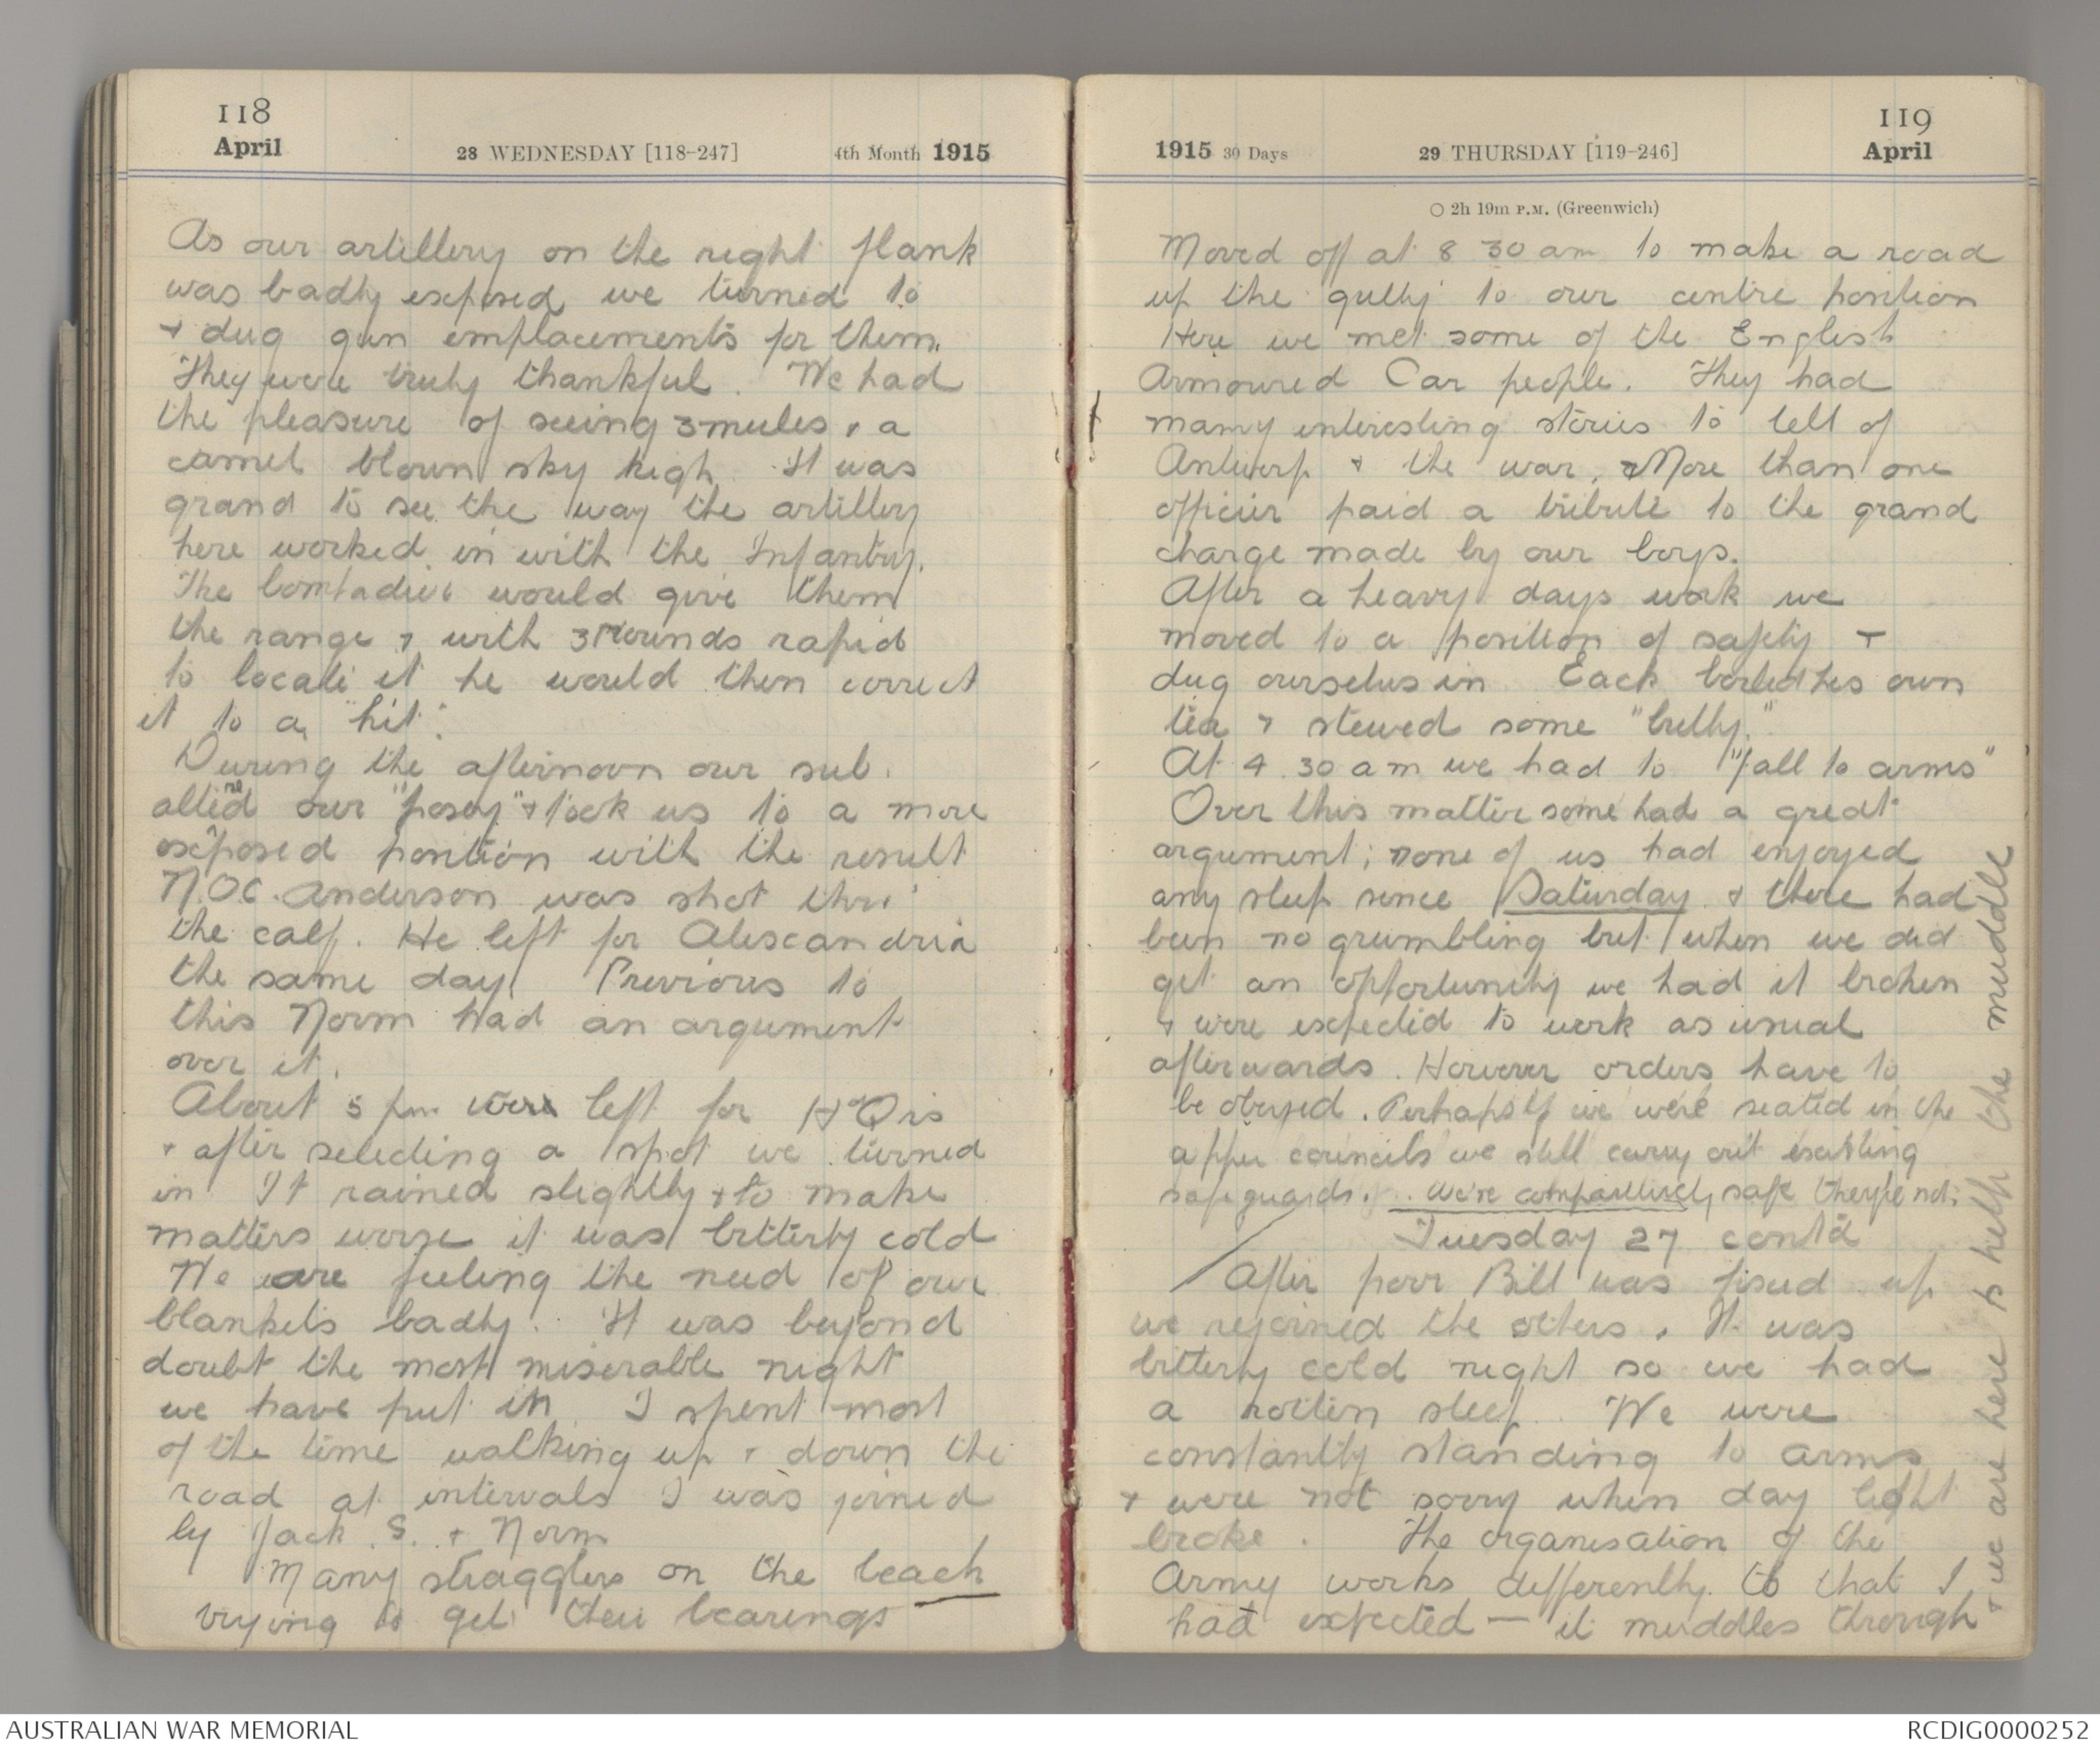 118
April
28 WEDNESDAY [118-247]
4th Month 1915
As our artillery on the right flank
was badly exposed we turned to
+ dug gun emplacements for them.
They were truly thankful. We had
the pleasure of seeing 3 mules + a
camel blown sky high. It was
grand to see the way the artillery
here worked in with the Infantry.
The would give them
the range + with 3 rounds rapid
to locate it he would then correct
it to a "hit".
During the afternoon our sub.
our "posey" + took us to a more
exposed position with the result
N.O.C. Anderson was shot thro'
the calf. He left for Alexandria
the same day. Previous to
this Norm had an argument
over it.
About 5 pm left for
+ after selecting a spot we turned
in It rained slightly + to make
matters worse it was bitterly cold
We are feeling the need of our
blankets badly. It was beyond
doubt the most miserable night
we have put in I spent most
of the time walking up + down the
road at intervals I was joined
by Jack S. + Norm
Many stragglers on the beach
trying to get their bearings
1915 30 Days
29 THURSDAY [119-246]
119
April
2h 19m P.M. (Greenwich)
Moved off at 8 30 am to make a road
up the gully to our centre position
Here we met some of the English
Armoured Car people. They had
many interesting stories to tell of
Antwerp + the war. More than one
officier paid a tribute to the grand
charge made by our boys.
After a heavy days work we
moved to a position of safety +
dug ourselves in Each boiled his own
tea + stewed some "bully."
At 4 30 am we had to "fall to arms"
Over this matter some had a great
argument; none of us had enjoyed
any sleep since Saturday + there had
been no grumbling but when we did
get an opportunity we had it broken
+ were expected to work as usual
afterwards. However orders have to
be obeyed. Perhaps if we were seated in the
upper councils we still carry out
safeguards. We're comparitively safe
Tuesday 27 contd
After poor Bill was fixed up
we rejoined the others. It was
bitterly cold night so we had
a rotten sleep. We were
constantly standing to arms
+ were not sorry when day light
broke. The organisation of the
Army works differently to that I
had expected — it muddles through
+ we are here to help the muddle
AUSTRALIAN WAR MEMORIAL
RCDIG0000252